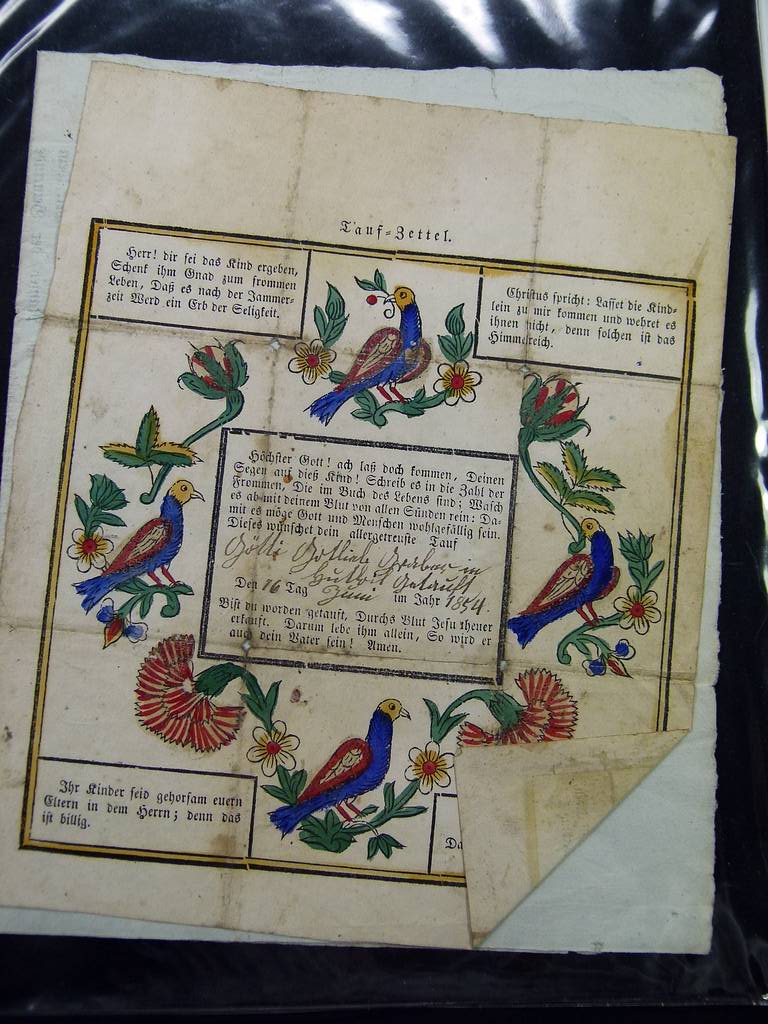 Tauf-Zettel.
Herr! dir sei das Kind ergeben,
Schenk ihm Gnad zum frommen
Leben, Daß es nach der Jammer-
zeit Werd ein Erb der Seligkeit.
Christus spricht: Lasset die Kind-
lein zu mir kommen und wehret es
ihnen nicht, denn solchen ist das
Himmelreich.
Höchster Gott! ach laß doch kommen, Deinen
Segen auf dieß Kind! Schreib es in die Zahl der
Frommen, Die im Buch des Lebens sind; Wasch
es ab mit deinem Blut von allen Sünden rein: Da-
mit es möge Gott und Menschen wohlgefällig sein.
Dieses wünschet dein allergetreuste Tauf
Götti Gotlieb Graber in
Hutwil getauft
Den 16 Tag Juni im Jahr 1854.
Bist du worden getauft, Durchs Blut Jesu theuer
erkauft. Darum lebe ihm allein, So wird er
auch dein Vater sein! Amen.
Ihr Kinder seid gehorsam euern
Eltern in dem Herrn; denn das
ist billig.